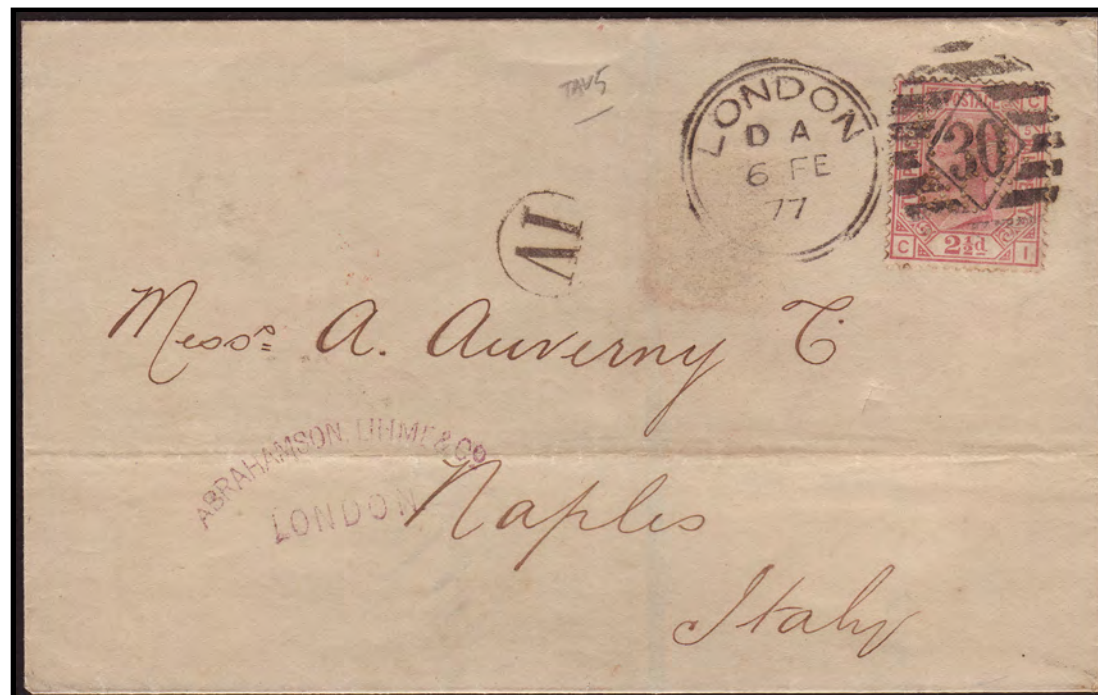 LONDON
D A
6 FE
77
30
I C
POSTAGE
C I
2½d
IV
Messrs A. Auverny C
ABRAHAMSON, UHME & Co
LONDON
Naples
Italy